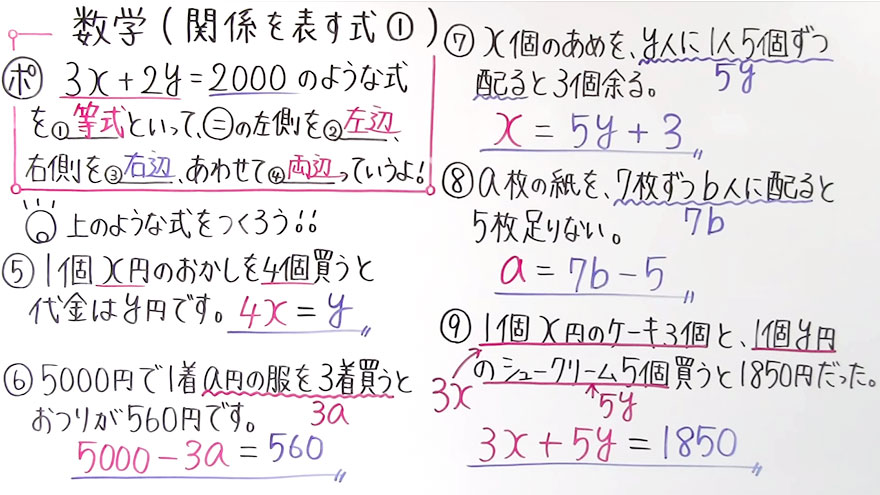 数学(関係を表す式①)
ポ 3x+2y=2000のような式
を①等式といって、=の左側を②左辺、
右側を③右辺、あわせて④両辺っていうよ!
上のような式をつくろう!!
⑤1個x円のおかしを4個買うと
代金はy円です。4x=y
⑥5000円で1着a円の服を3着買うと
おつりが560円です。
3a
5000-3a=560
⑦x個のあめを、y人に1人5個ずつ
5y
配ると3個余る。
x=5y+3
⑧a枚の紙を、7枚ずつb人に配ると
7b
5枚足りない。
a=7b-5
⑨1個x円のケーキ3個と、1個y円
のシュークリーム5個買うと1850円だった。
3x
5y
3x+5y=1850